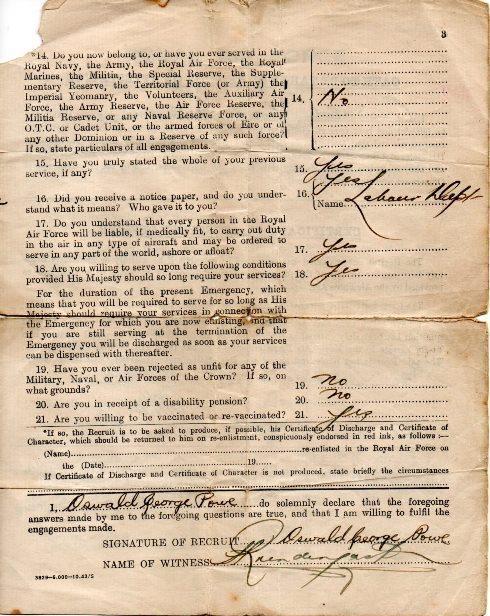 3
*14. Do you now belong to, or have you ever served in the
Royal Navy, the Army, the Royal Air Force, the Royal
Marines, the Militia, the Special Reserve, the Supple-
mentary Reserve, the Territorial Force (or Army) the
Imperial Yeomanry, the Volunteers, the Auxiliary Air
Force, the Army Reserve, the Air Force Reserve, the
Militia Reserve, or any Naval Reserve Force, or any
O.T.C. or Cadet Unit, or the armed forces of Eire or of
any other Dominion or in a Reserve of any such force?
If so, state particulars of all engagements.
14. No
15. Have you truly stated the whole of your previous
service, if any?
15. Yes
16. Did you receive a notice paper, and do you under-
stand what it means? Who gave it to you?
16. Yes
Name Labour Dept
17. Do you understand that every person in the Royal
Air Force will be liable, if medically fit, to carry out duty
in the air in any type of aircraft and may be ordered to
serve in any part of the world, ashore or afloat?
17. Yes
18. Are you willing to serve upon the following conditions
provided His Majesty should so long require your services?
18. Yes
For the duration of the present Emergency, which
means that you will be required to serve for so long as His
Majesty should require your services in connection with
the Emergency for which you are now enlisting, and that
if you are still serving at the termination of the
Emergency you will be discharged as soon as your services
can be dispensed with thereafter.
19. Have you ever been rejected as unfit for any of the
Military, Naval, or Air Forces of the Crown? If so, on
what grounds?
19. No
20. Are you in receipt of a disability pension?
20. No
21. Are you willing to be vaccinated or re-vaccinated?
21. Yes
*If so, the Recruit is to be asked to produce, if possible, his Certificate of Discharge and Certificate of
Character, which should be returned to him on re-enlistment, conspicuously endorsed in red ink, as follows :—
(Name) re-enlisted in the Royal Air Force on
the (Date) 19
If Certificate of Discharge and Certificate of Character is not produced, state briefly the circumstances
I, Oswald George Powe do solemnly declare that the foregoing
answers made by me to the foregoing questions are true, and that I am willing to fulfil the
engagements made.
SIGNATURE OF RECRUIT Oswald George Powe
NAME OF WITNESS
3829—6,000—10.43/S